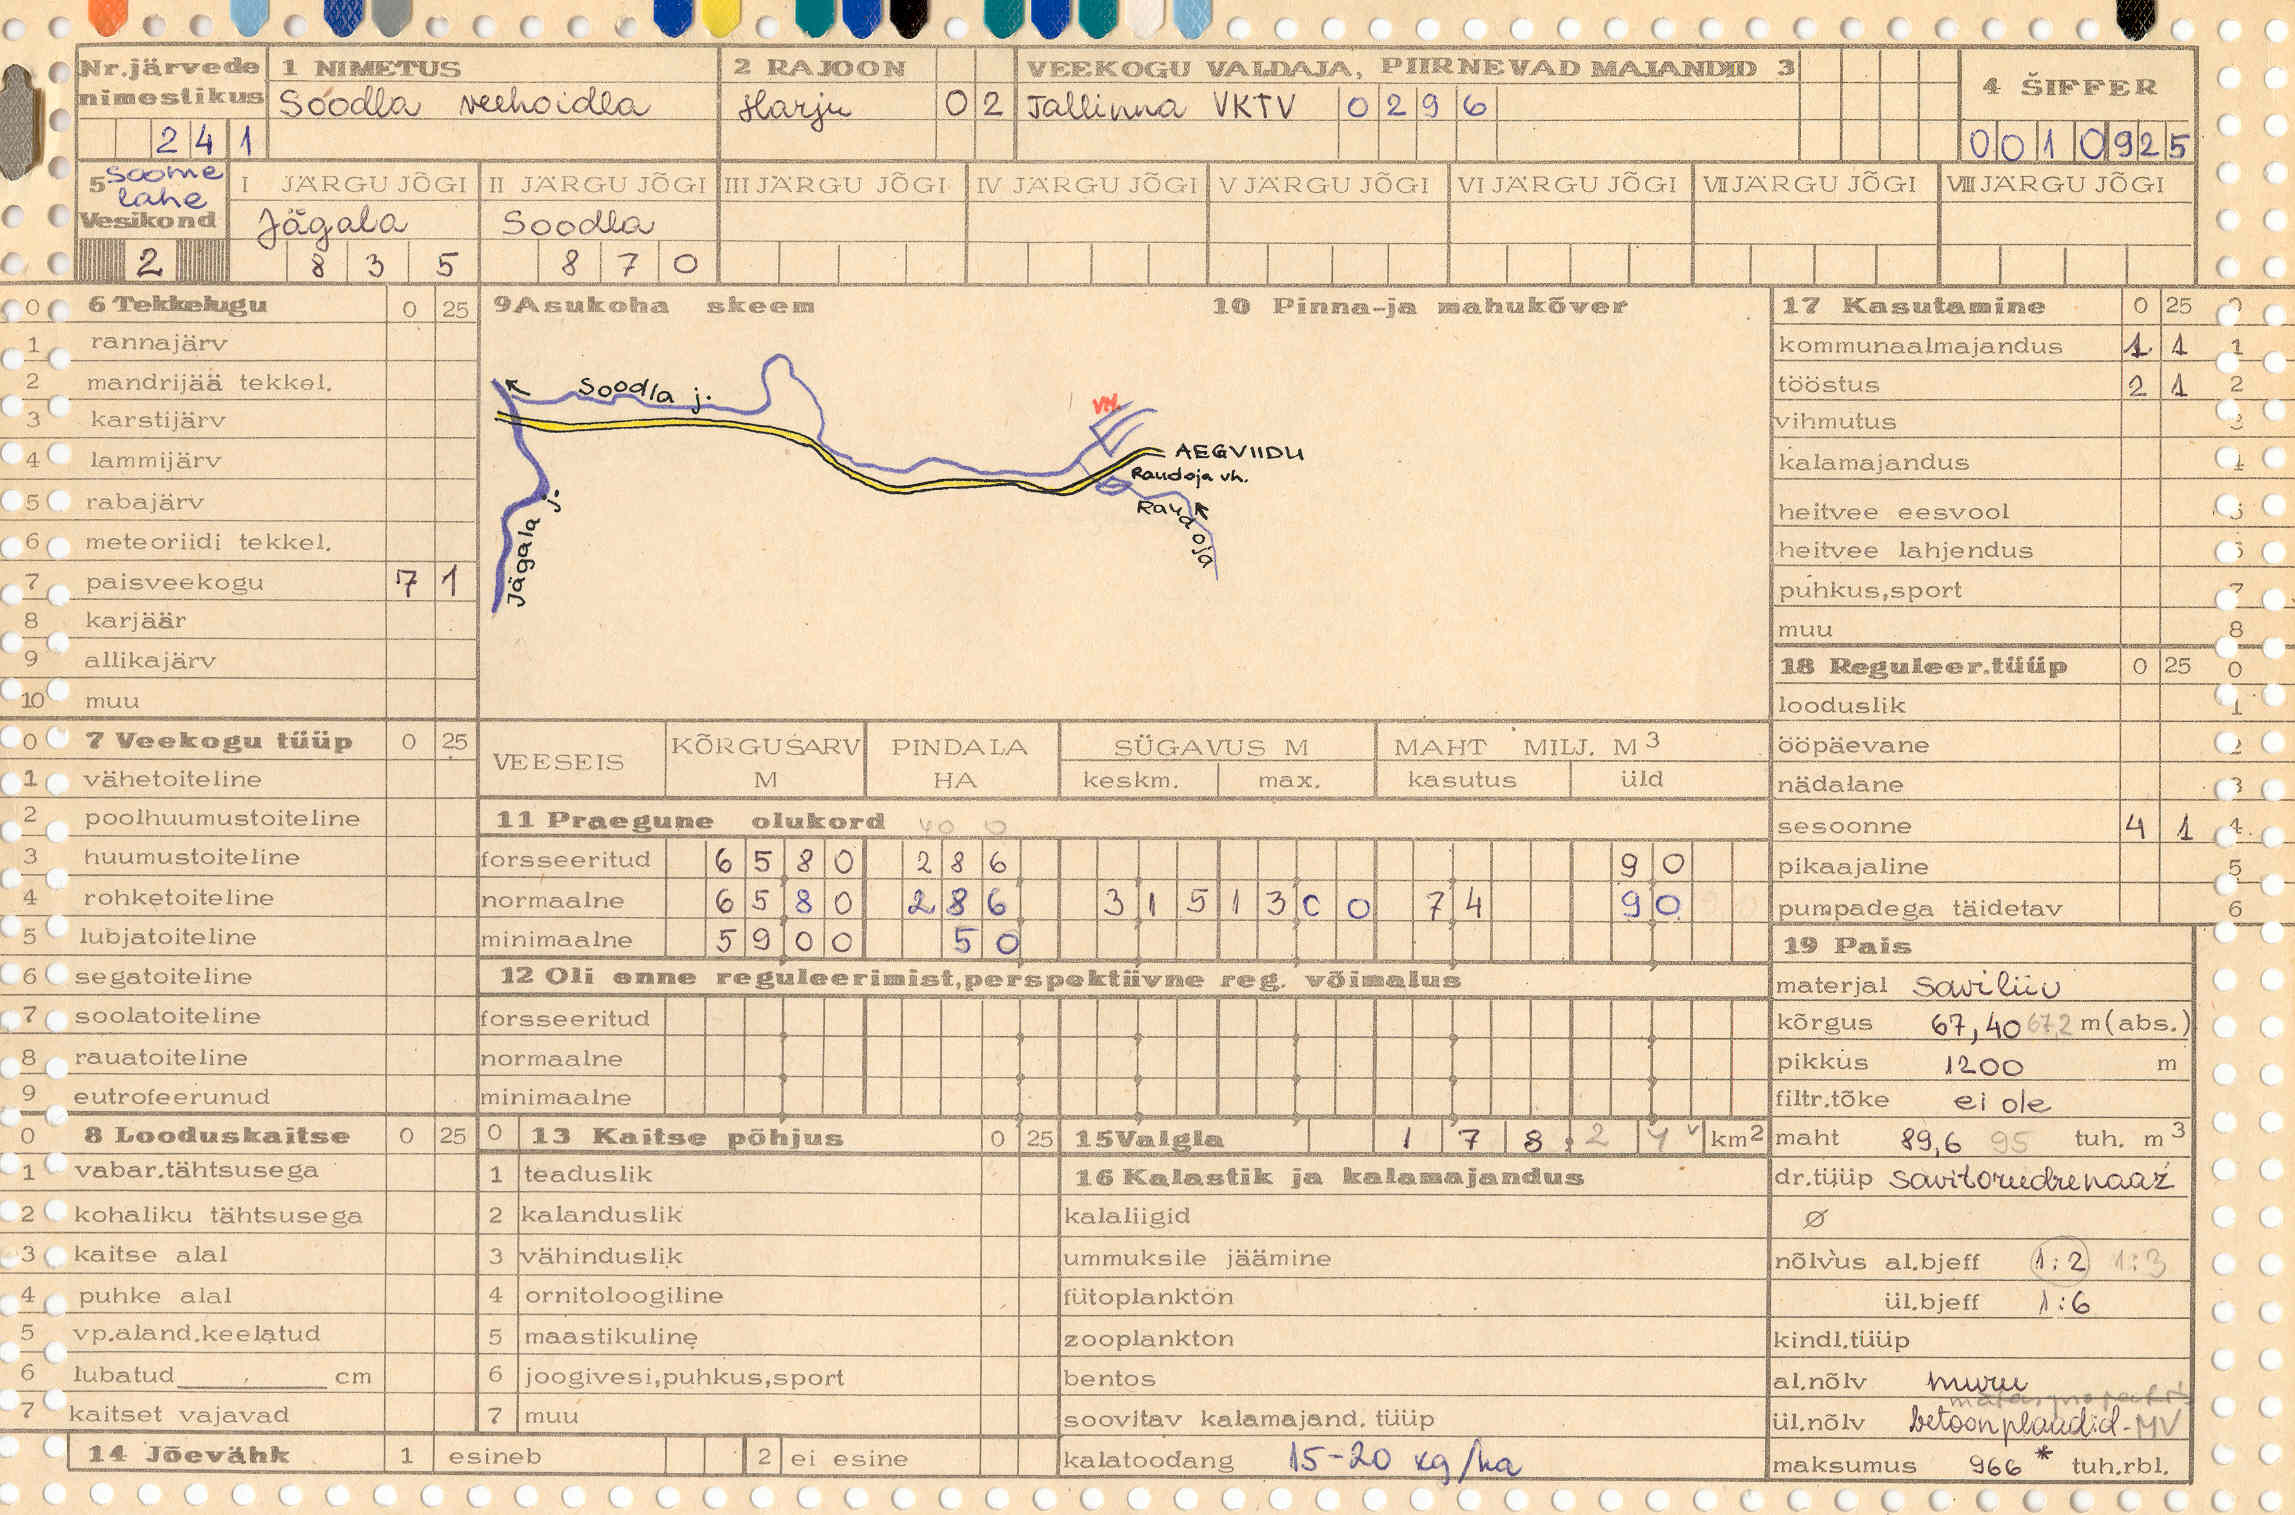 Nr.järvede nimestikus 2 4 1
1 NIMETUS
Soodla veehoidla
2 RAJOON
Harju 0 2
VEEKOGU VALDAJA, PIIRNEVAD MAJANDID 3
Tallinna VKTV 0 2 9 6
4 ŠIFFER
0 0 1 0 9 2 5
5 Soome lahe Vesikond
2
I JÄRGU JÕGI
Jägala
8 3 5
II JÄRGU JÕGI
Soodla
8 7 0
III JÄRGU JÕGI
IV JÄRGU JÕGI
V JÄRGU JÕGI
VI JÄRGU JÕGI
VII JÄRGU JÕGI
VIII JÄRGU JÕGI
0 6 Tekkelugu 0 25
1 rannajärv
2 mandrijää tekkel.
3 karstijärv
4 lammijärv
5 rabajärv
6 meteoriidi tekkel.
7 paisveekogu 7 1
8 karjäär
9 allikajärv
10 muu
0 7 Veekogu tüüp 0 25
1 vähetoiteline
2 poolhuumustoiteline
3 huumustoiteline
4 rohketoiteline
5 lubjatoiteline
6 segatoiteline
7 soolatoiteline
8 rauatoiteline
9 eutrofeerunud
0 8 Looduskaitse 0 25
1 vabar.tähtsusega
2 kohaliku tähtsusega
3 kaitse alal
4 puhke alal
5 vp.aland.keelatud
6 lubatud cm
7 kaitset vajavad
14 Jõevähk 1 esineb 2 ei esine
9 Asukoha skeem
10 Pinna-ja mahukõver
Soodla j.
VH.
AEGVIIDU
Raudoja vh.
Raudoja
Jägala j.
VEESEIS KÕRGUSARV M PINDALA HA SÜGAVUS M keskm. max. MAHT MILJ. M3 kasutus üld
11 Praegune olukord
forsseeritud 6 5 8 0 2 8 6 9 0
normaalne 6 5 8 0 2 8 6 3 1 5 1 3 0 0 7 4 9 0
minimaalne 5 9 0 0 5 0
12 Oli enne reguleerimist,perspektiivne reg. võimalus
forsseeritud
normaalne
minimaalne
0 13 Kaitse põhjus 0 25
1 teaduslik
2 kalanduslik
3 vähinduslik
4 ornitoloogiline
5 maastikuline
6 joogivesi,puhkus,sport
7 muu
15 Valgla 1 7 8 , 2 4 km2
16 Kalastik ja kalamajandus
kalaliigid
ummuksile jäämine
fütoplankton
zooplankton
bentos
soovitav kalamajand. tüüp
kalatoodang 15-20 kg/ha
17 Kasutamine 0 25 0
kommunaalmajandus 1 1 1
tööstus 2 1 2
vihmutus 3
kalamajandus 4
heitvee eesvool 5
heitvee lahjendus 6
puhkus,sport 7
muu 8
18 Reguleer.tüüp 0 25 0
looduslik 1
ööpäevane 2
nädalane 3
sesoonne 4 1 4
pikaajaline 5
pumpadega täidetav 6
19 Pais
materjal Saviliiv
kõrgus 67,40 67,2 m (abs.)
pikkus 1200 m
filtr.tõke ei ole
maht 89,6 95 tuh. m3
dr.tüüp savitorudrenaaž
Ø
nõlvus al.bjeff 1:2 1:3
ül.bjeff 1:6
kindl.tüüp
al.nõlv muru
ül.nõlv betoonplaadid - MV
maksumus 966 * tuh.rbl.